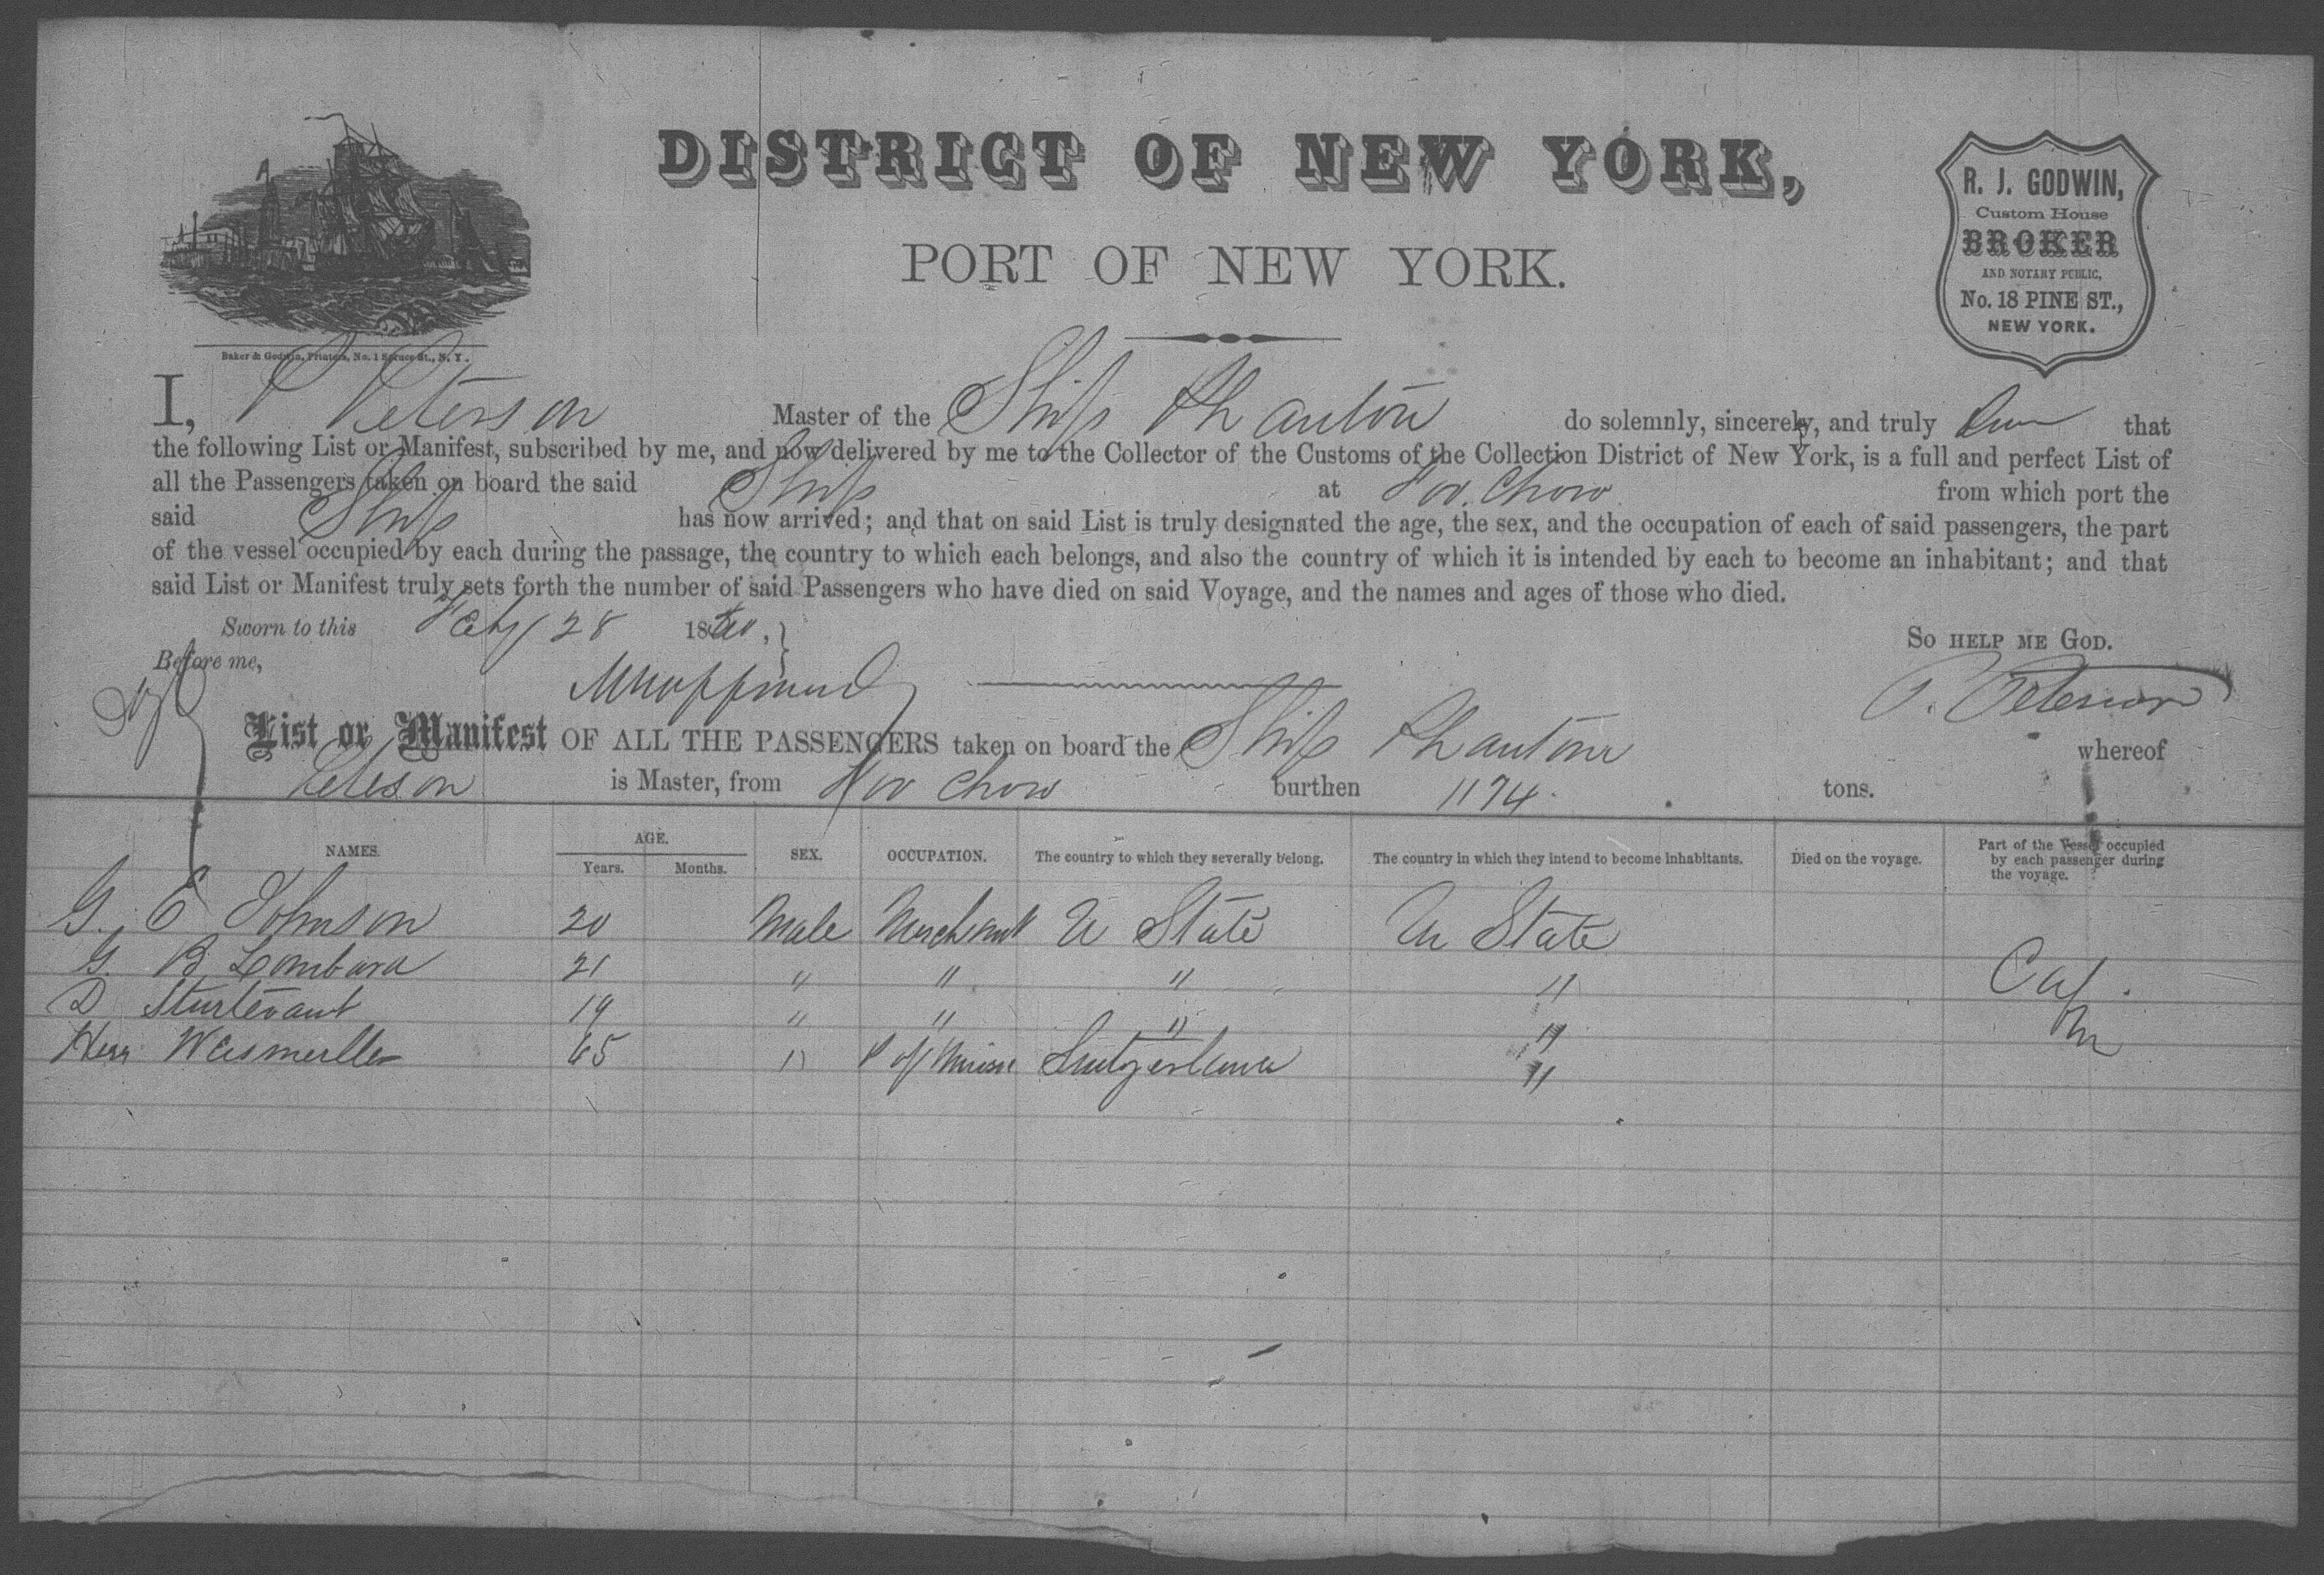 DISTRICT OF NEW YORK,
PORT OF NEW YORK.
R. J. GODWIN,
Custom House
BROKER
AND NOTARY PUBLIC,
No. 18 PINE ST.,
NEW YORK.
Baker & Godwin, Printers, No. 1 Spruce St., N. Y.
I, P Peterson Master of the Ship Phantom do solemnly, sincerely, and truly that
the following List or Manifest, subscribed by me, and now delivered by me to the Collector of the Customs of the Collection District of New York, is a full and perfect List of
all the Passengers taken on board the said Ship at Foo Chow from which port the
said Ship has now arrived; and that on said List is truly designated the age, the sex, and the occupation of each of said passengers, the part
of the vessel occupied by each during the passage, the country to which each belongs, and also the country of which it is intended by each to become an inhabitant; and that
said List or Manifest truly sets forth the number of said Passengers who have died on said Voyage, and the names and ages of those who died.
Sworn to this Feby 28 18 So help me God.
Before me,
P. Peterson
List or Manifest OF ALL THE PASSENGERS taken on board the Ship Phantom whereof
Peterson is Master, from Foo Chow burthen 1174 tons.
NAMES. AGE. Years. Months. SEX. OCCUPATION. The country to which they severally belong. The country in which they intend to become inhabitants. Died on the voyage. Part of the Vessel occupied by each passenger during the voyage.
G. E Johnson 20 Male Merchant U State U State
G. B. Lombard 21 " " " " Cab.
D Sturtevant 19 " " " "
Herr 65 " P of Music Switzerland "